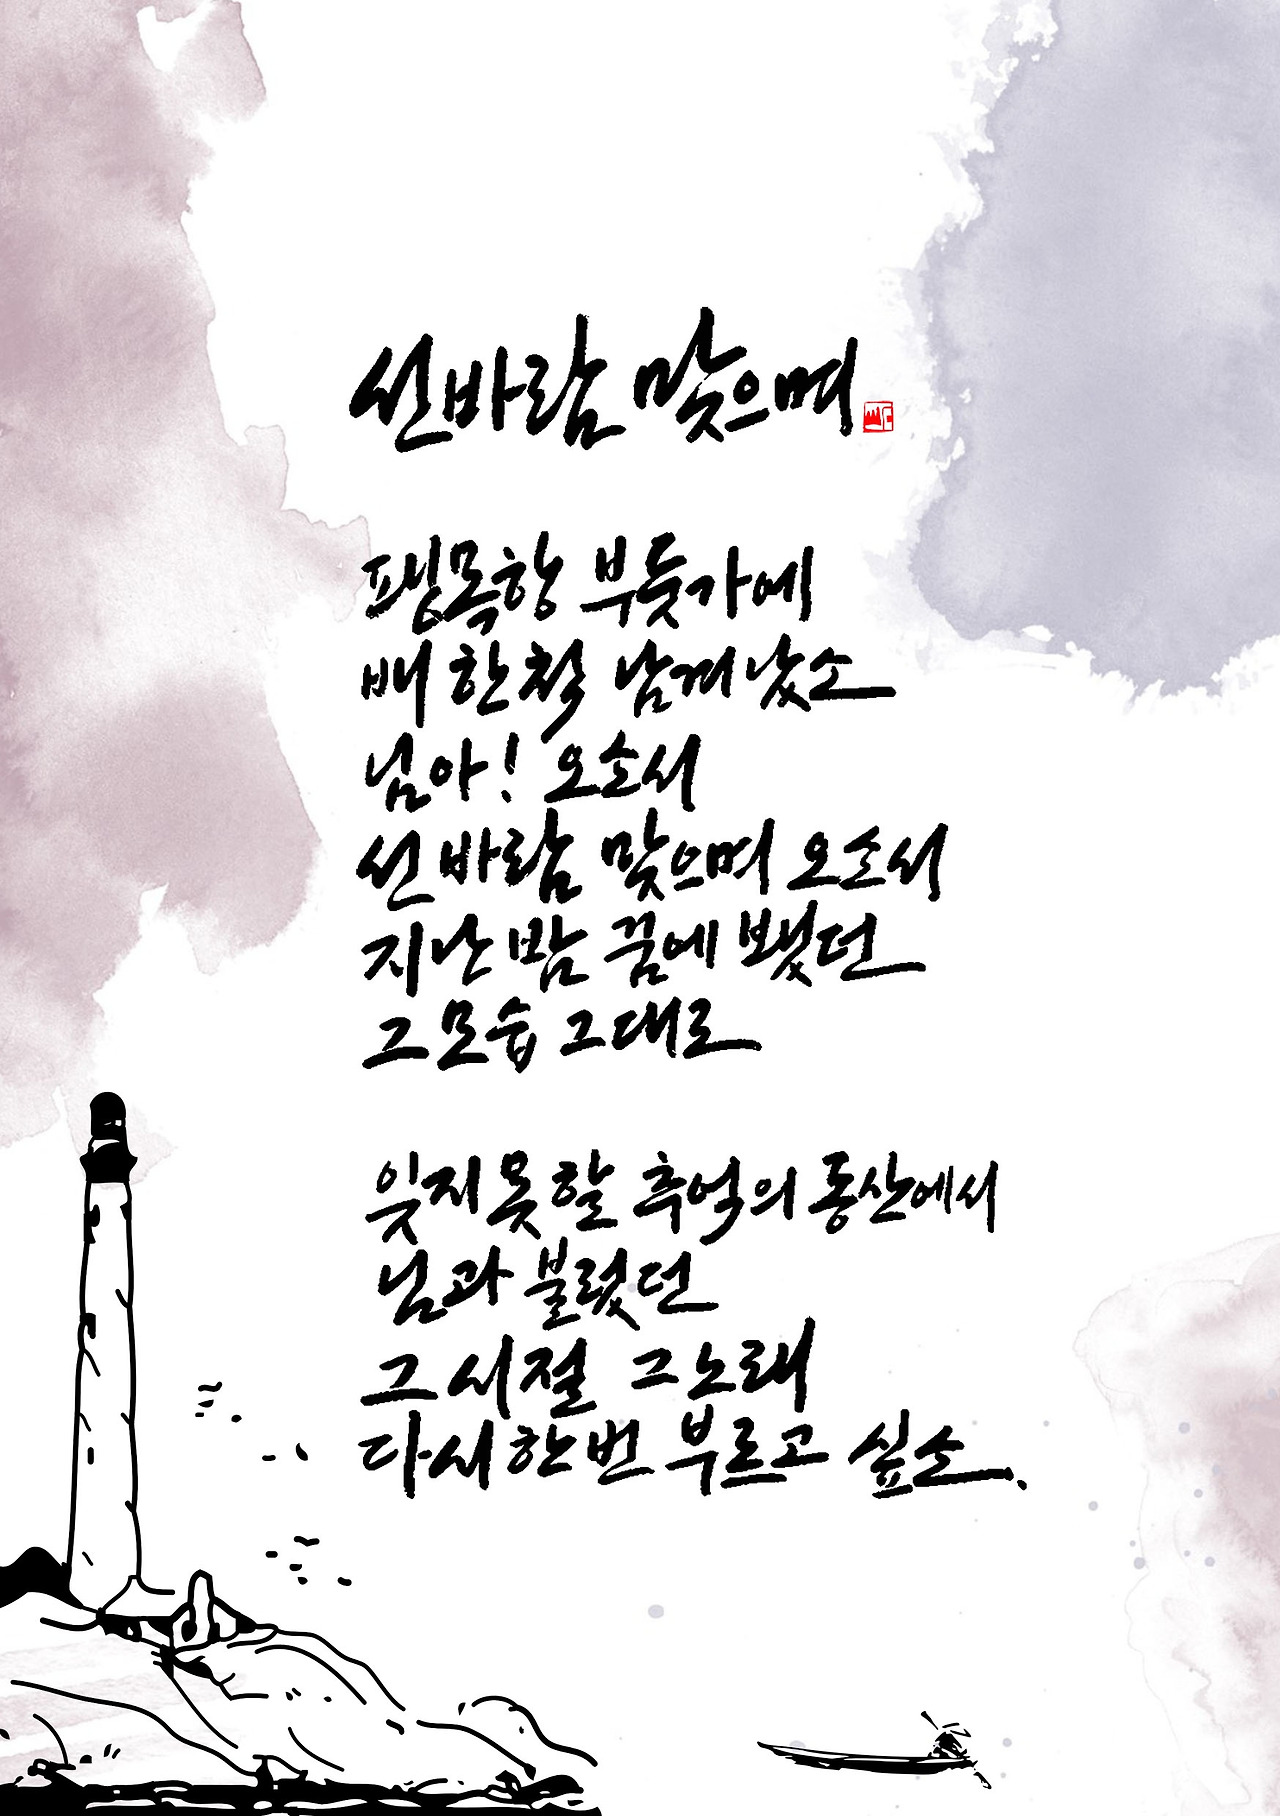 선바람 맞으며
팽목항 부둣가에
배 한척 남겨 놨소
님아! 오소서
선바람 맞으며 오소서
지난 밤 꿈에 뵀던
그 모습 그대로
잊지 못할 추억의 동산에서
님과 불렀던
그 시절 그 노래
다시 한번 부르고 싶소.